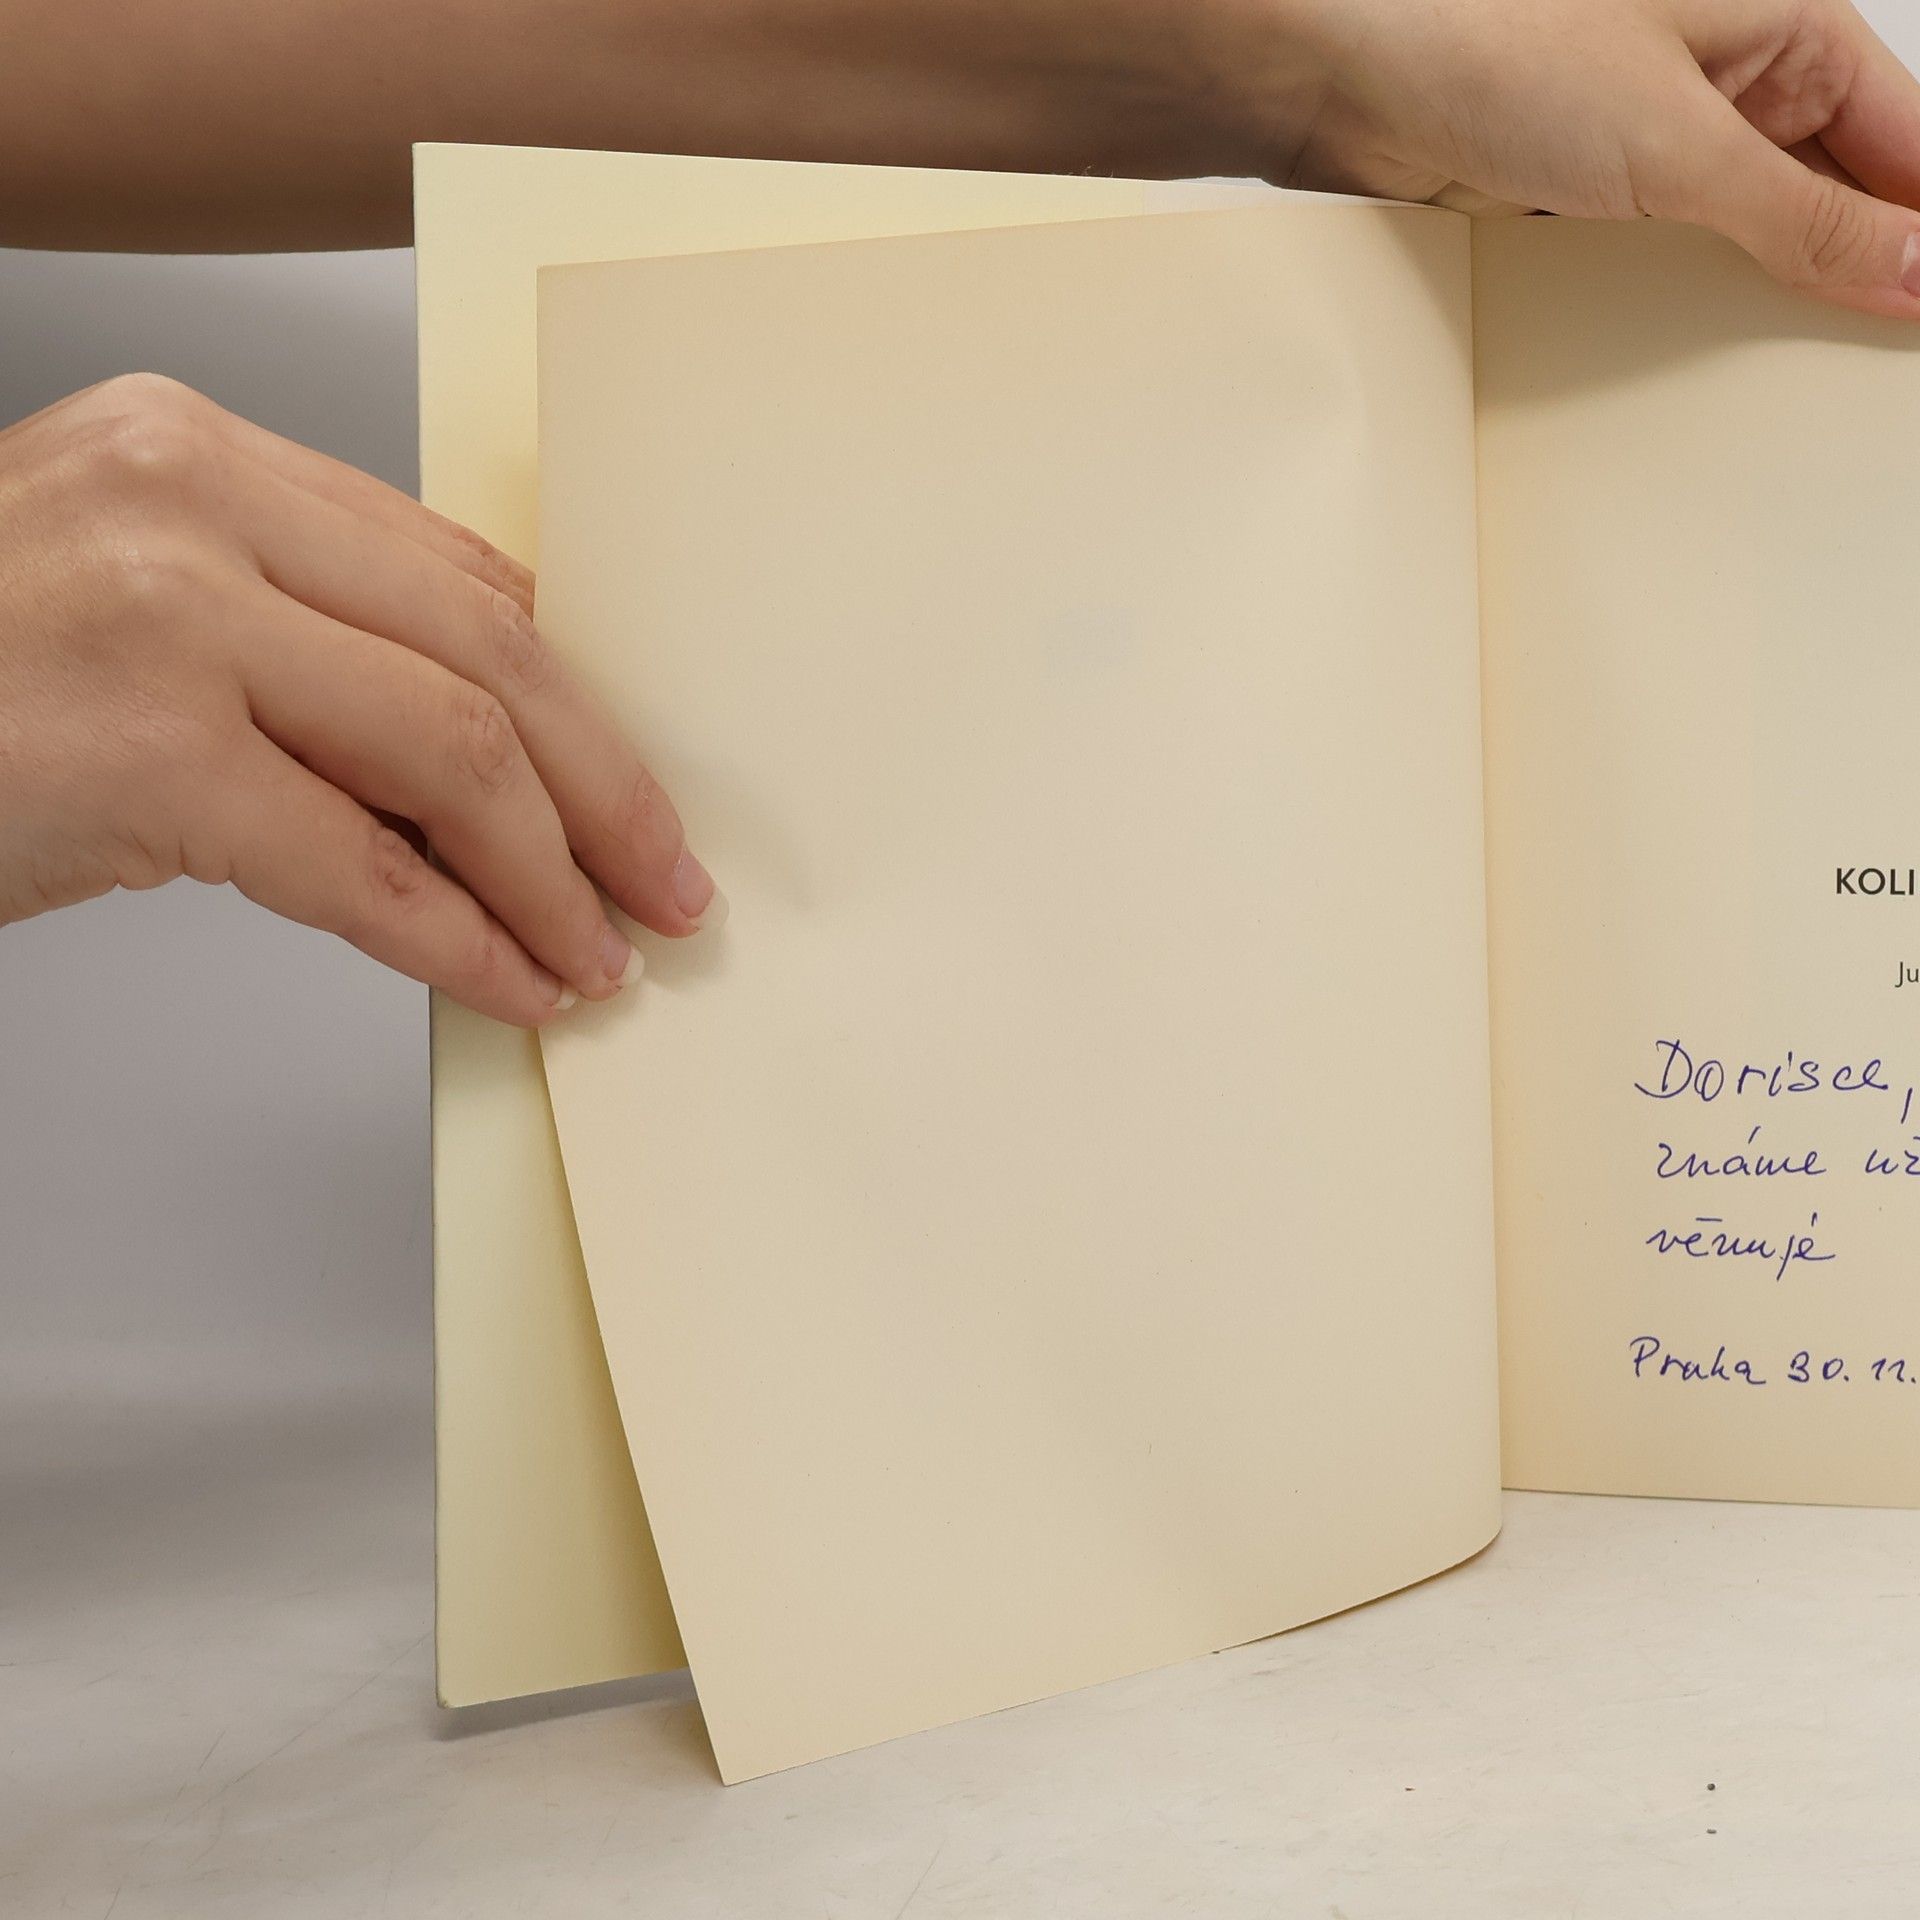 KOLI
Ju
Dorisce,
známe už
věnuje
Praha 30. 11.